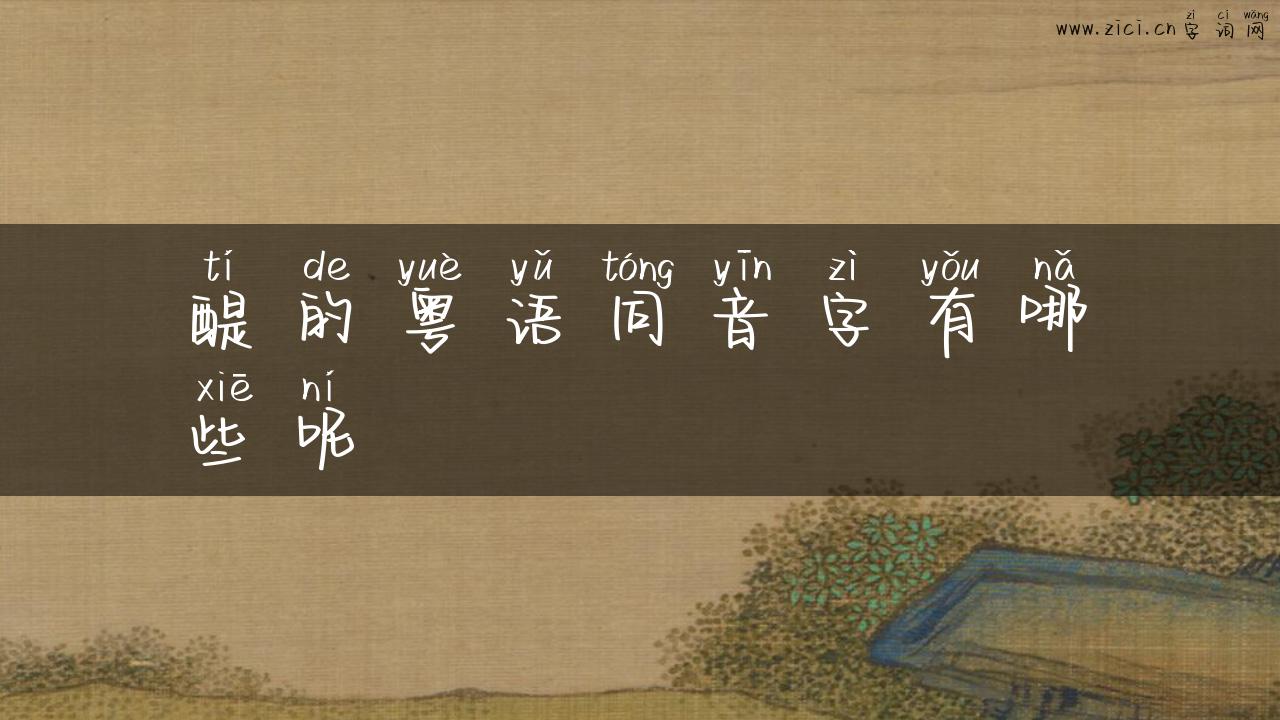 zì cí wǎng
www.zici.cn 字词网
tí de yuè yǔ tóng yīn zì yǒu nǎ
醍的粤语同音字有哪
xiē ní
些呢